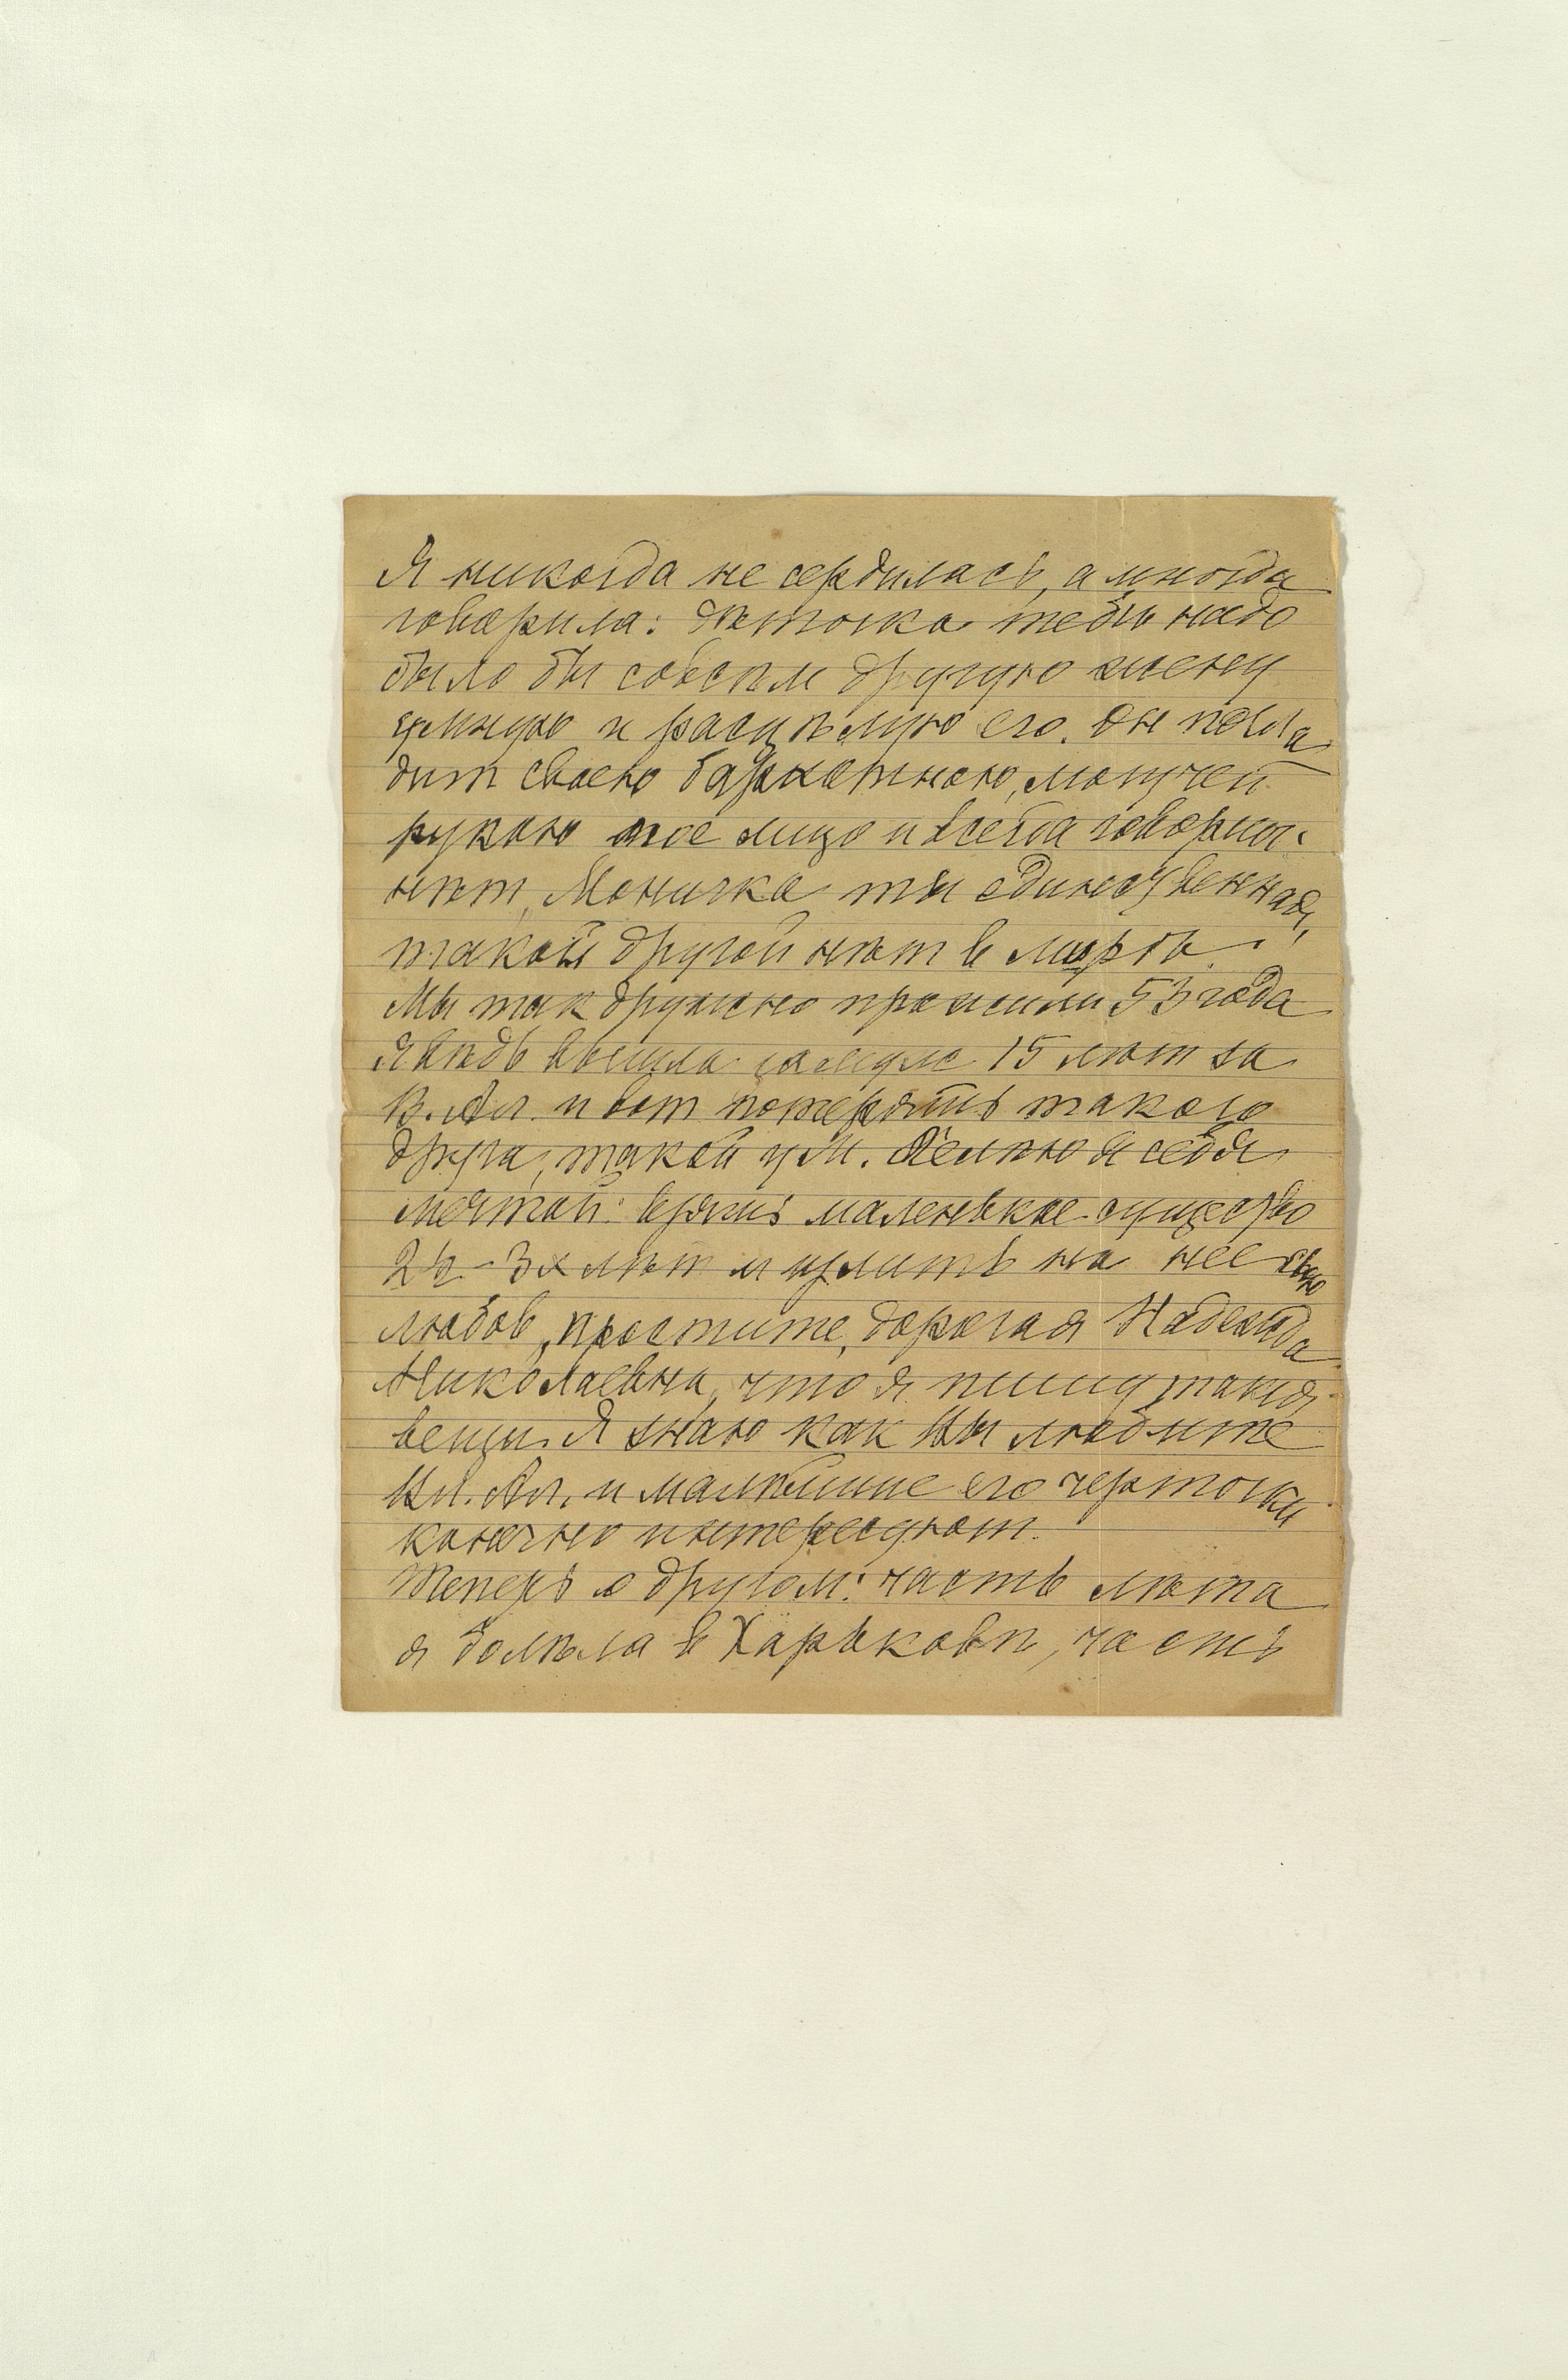 Я никогда не сердилась, а иногда
говорила: дѣточка тебѣ надо
было бы совсѣм другую жену
умную и расцѣлую его. Он погла
дит своею бархатною, могучей
рукою мое лицо и всегда говорил:
нѣт, Моничка ты единственная,
такой другой нѣт в мирѣ.
Мы так дружно прожили 53 года
я вѣдь вышла замуж 15 лѣт за
В. Ал. и вот потерять такого
друга, такой ум. Лелѣю я себя
мечтой: взять маленькое существо
2х - 3х лѣт и излить на нее свою
любов, простите, дорогая Надежда
Николаевна, что я пишу такия
вещи. Я знаю как Вы любите
Вл. Ал. и малѣйшие его черточки
конечно интересуют.
Теперь о другом: часть лѣта
я болѣла в Харьковѣ, часть